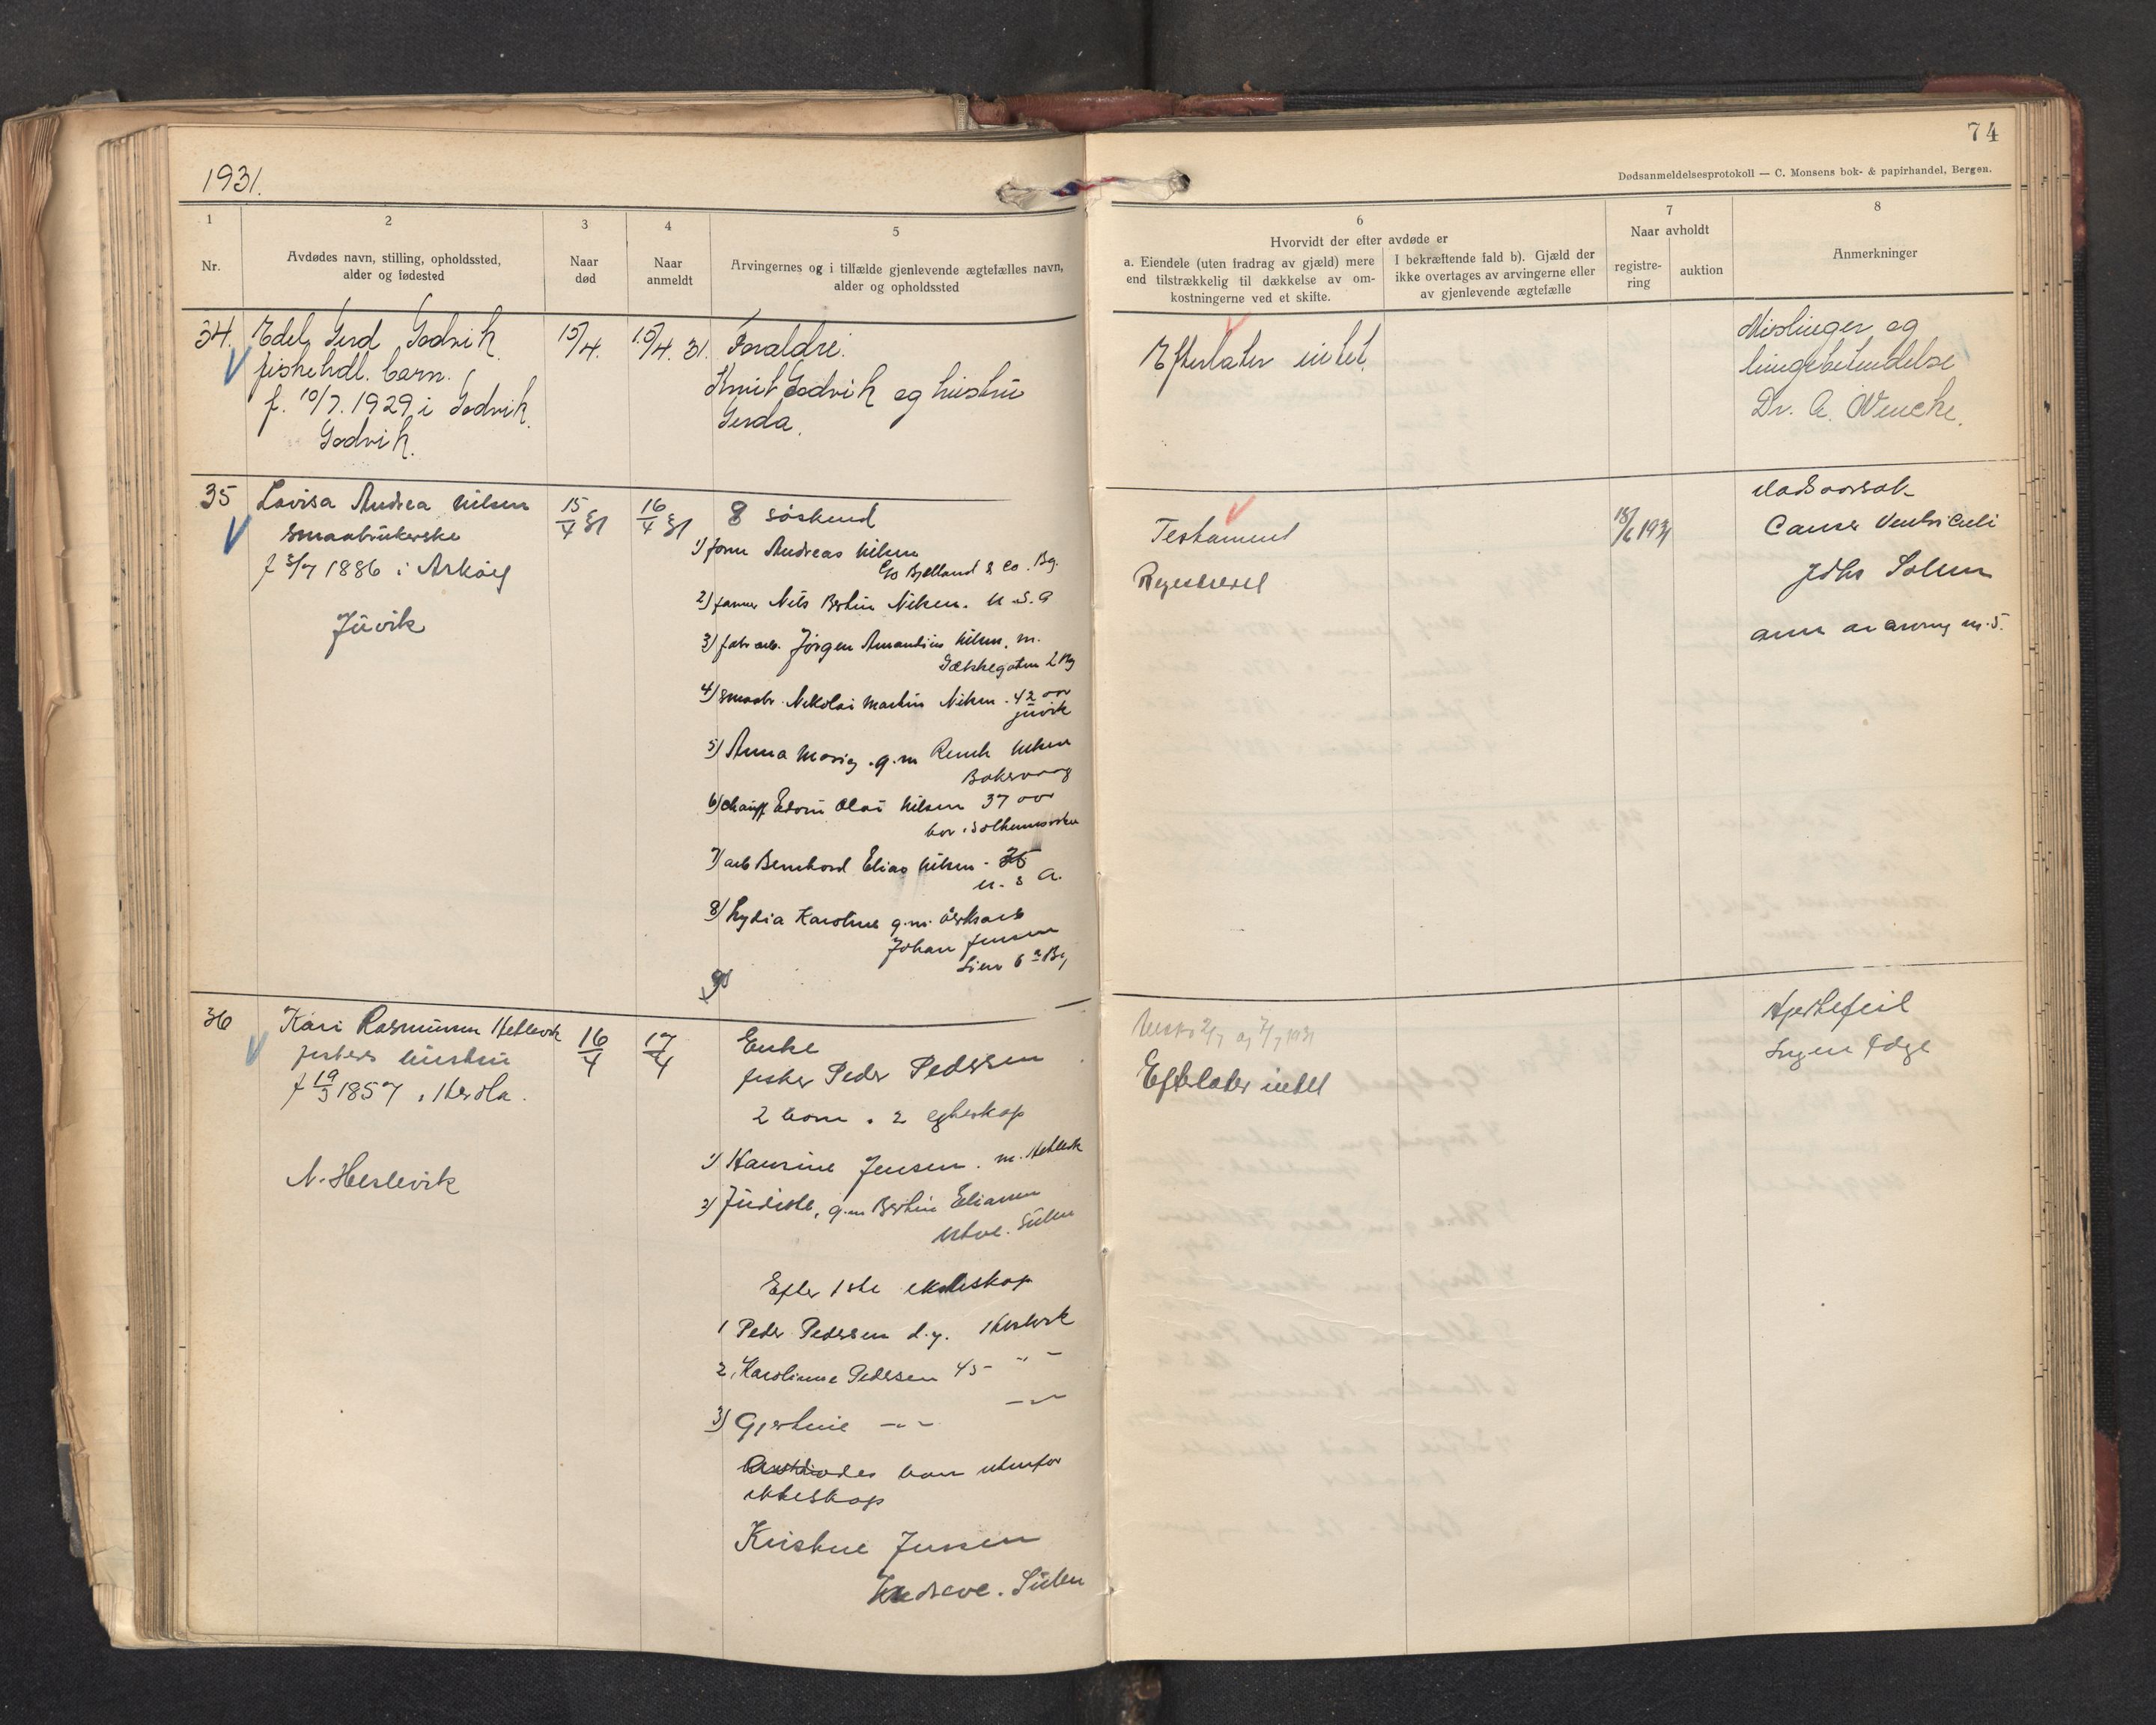 74
1931.
Dødsanmeldelsesprotokoll — C. Monsens bok- & papirhandel, Bergen.
1
Nr.
2
Avdødes navn, stilling, opholdssted,
alder og fødested
3
Naar
død
4
Naar
anmeldt
5
Arvingernes og i tilfælde gjenlevende ægtefælles navn,
alder og opholdssted
6
Hvorvidt der efter avdøde er
a. Eiendele (uten fradrag av gjæld) mere
end tilstrækkelig til dækkelse av om-
kostningerne ved et skifte.
I bekræftende fald b). Gjæld der
ikke overtages av arvingerne eller
av gjenlevende ægtefælle
7
Naar avholdt
registre-
ring
auktion
8
Anmerkninger
34.
Edel Gerd Godvik
fiskehdl. barn.
f. 10/7. 1929 i Godvik.
Godvik.
15/4.
15/4. 31.
Foraldre.
Knut Godvik og hustru
Gerda.
Efterlater intet.
Meslinger og
lungebetendelse
Dr. A. Wencke.
35
Lovisa Andrea Nilsen
smaabrukerske
f 5/7 1886 i Askøy
Juvik
15/4 31
16/4 31
8 søskend
1) Andreas Nilsen
c/o Bjelland & Co. Bg.
2) Nils Bertin Nilsen. U.S.A
3) Jørgen Amandius Nilsen, m.
2 Bg
4) smaabr. Nikolai Martin Nilsen. 42 aar
Juvik
5) Anna g.m Nilsen
6) chauff Edvin Olai Nilsen 37 aar
bor i
7) arb Bernhard Elias Nilsen - 35
U. S A.
8) Lydia Karoline g.m.
Johan Jensen
Lien 6 a Bg
Testament
Registreret
18/6 1931
dødsaarsak
Cancer Ventriculi
Johs Solem
36
Kari Rasmussen Hetlevik
fiskers hustru
f 19/3 1857 i Herdla.
N. Hetlevik
16/4
17/4
Enke
fisker Peder Pedersen
2 barn i 2 egteskap
1) Hansine Jensen. m. Hetlevik
2) g.m Bertin Eliassen
Sulen
Efter 1ste ekteskap
1 Peder Pedersen d.y.
2, Karolinne Pedersen 45 - " -
3) Gjertine - " - - " -
barn utenfor
ekteskap
Kristine Jensen
Sulen
Efterlater intet
Hjertefeil
Ingen læge